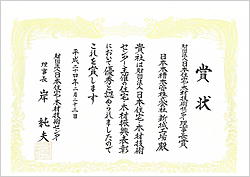 賞状
財団法人日本住宅・木材技術センター理事長賞
日本木槽木管株式会社 新城工場 殿
貴社は財団法人日本住宅・木材技術
センター主催の住宅・木材振興表彰
において優秀と認められましたので
これを賞します
平成二十四年二月二十三日
財団法人日本住宅・木材技術センター
理事長 岸 純夫